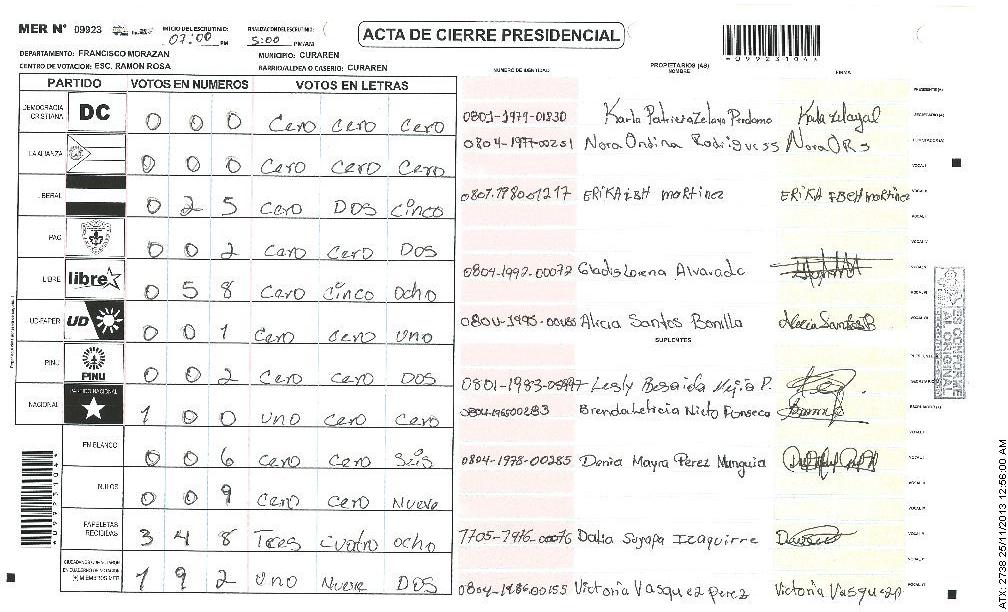 MER N° 09923 INICIO DEL ESCRUTINIO: 07:00 PM FINALIZACION DEL ESCRUTINIO: 5:00 PM/AM ACTA DE CIERRE PRESIDENCIAL
DEPARTAMENTO: FRANCISCO MORAZAN MUNICIPIO: CURAREN
CENTRO DE VOTACION: ESC. RAMON ROSA BARRIO/ALDEA O CASERIO: CURAREN
PARTIDO VOTOS EN NUMEROS VOTOS EN LETRAS
DEMOCRACIA CRISTIANA DC 0 0 0 Cero Cero Cero
LA ALIANZA 0 0 0 Cero Cero Cero
LIBERAL 0 2 5 Cero DOS Cinco
PAC 0 0 2 Cero Cero DOS
LIBRE libre 0 5 8 Cero Cinco Ocho
UD-FAPER UD 0 0 1 Cero Cero Uno
PINU PINU 0 0 2 Cero Cero DOS
NACIONAL 1 0 0 Uno Cero Cero
EN BLANCO 0 0 6 Cero Cero Seis
NULOS 0 0 9 Cero Cero Nueve
PAPELETAS RECIBIDAS 3 4 8 Tres Cuatro Ocho
1 9 2 Uno Nueve DOS
NUMERO DE IDENTIDAD PROPIETARIOS (AS) NOMBRE FIRMA
0801-1979-01830 Karla Patricia Zelaya Perdomo
0804-1977-00251 Nora Ondina Rodriguess Nora ORs
0807-1980-01217 ERIKA IBH martinez ERIKA IBEH martinez
0804-1992-00072 Gladis Lorena Alvarado
Alicia Santos Bonilla Alicia Santos B
SUPLENTES
Lesly Mejia P.
Brenda Leticia Nieto Fonseca
0804-1978-00285 Denia Mayra Perez Munguia
Dalia Suyapa Izaguirre
0804-1986-00155 Victoria Vasquez perez Victoria Vasquez
09923104
ES CONFORME AL ORIGINAL
ATX 2738 25/11/2013 12:56:00 AM